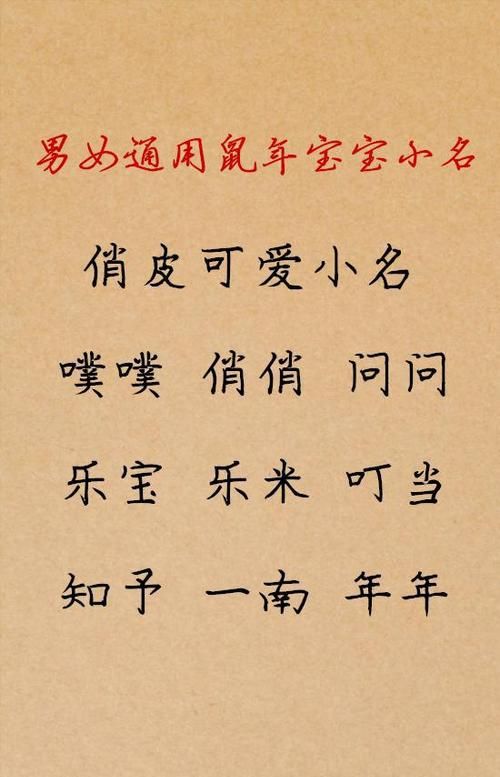 男女通用鼠年宝宝小名
俏皮可爱小名
噗噗 俏俏 问问
乐宝 乐米 叮当
知予 一南 年年